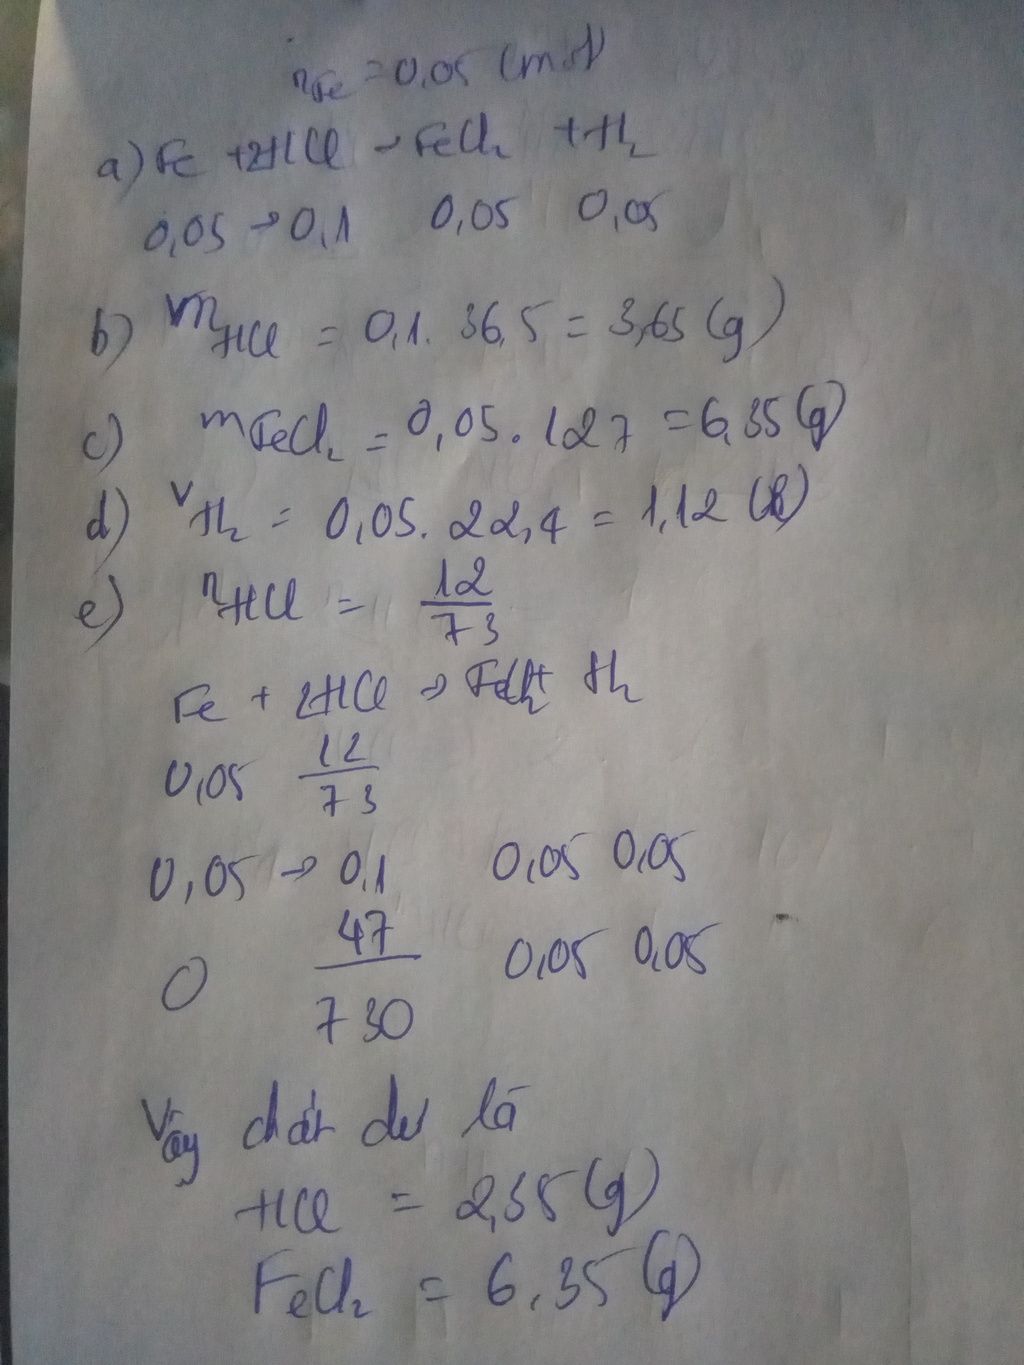 nFe = 0,05 (mol)
a) Fe + 2HCl → FeCl2 + H2
0,05 → 0,1 0,05 0,05
b) mHCl = 0,1. 36,5 = 3,65 (g)
c) mFeCl2 = 0,05. 127 = 6,35 (g)
d) VH2 = 0,05. 22,4 = 1,12 (l)
e) nHCl = 12/73
Fe + 2HCl → FeCl2 + H2
0,05 12/73
0,05 → 0,1 0,05 0,05
0 47/730 0,05 0,05
Vậy chất dư là
HCl = 2,35 (g)
FeCl2 = 6,35 (g)